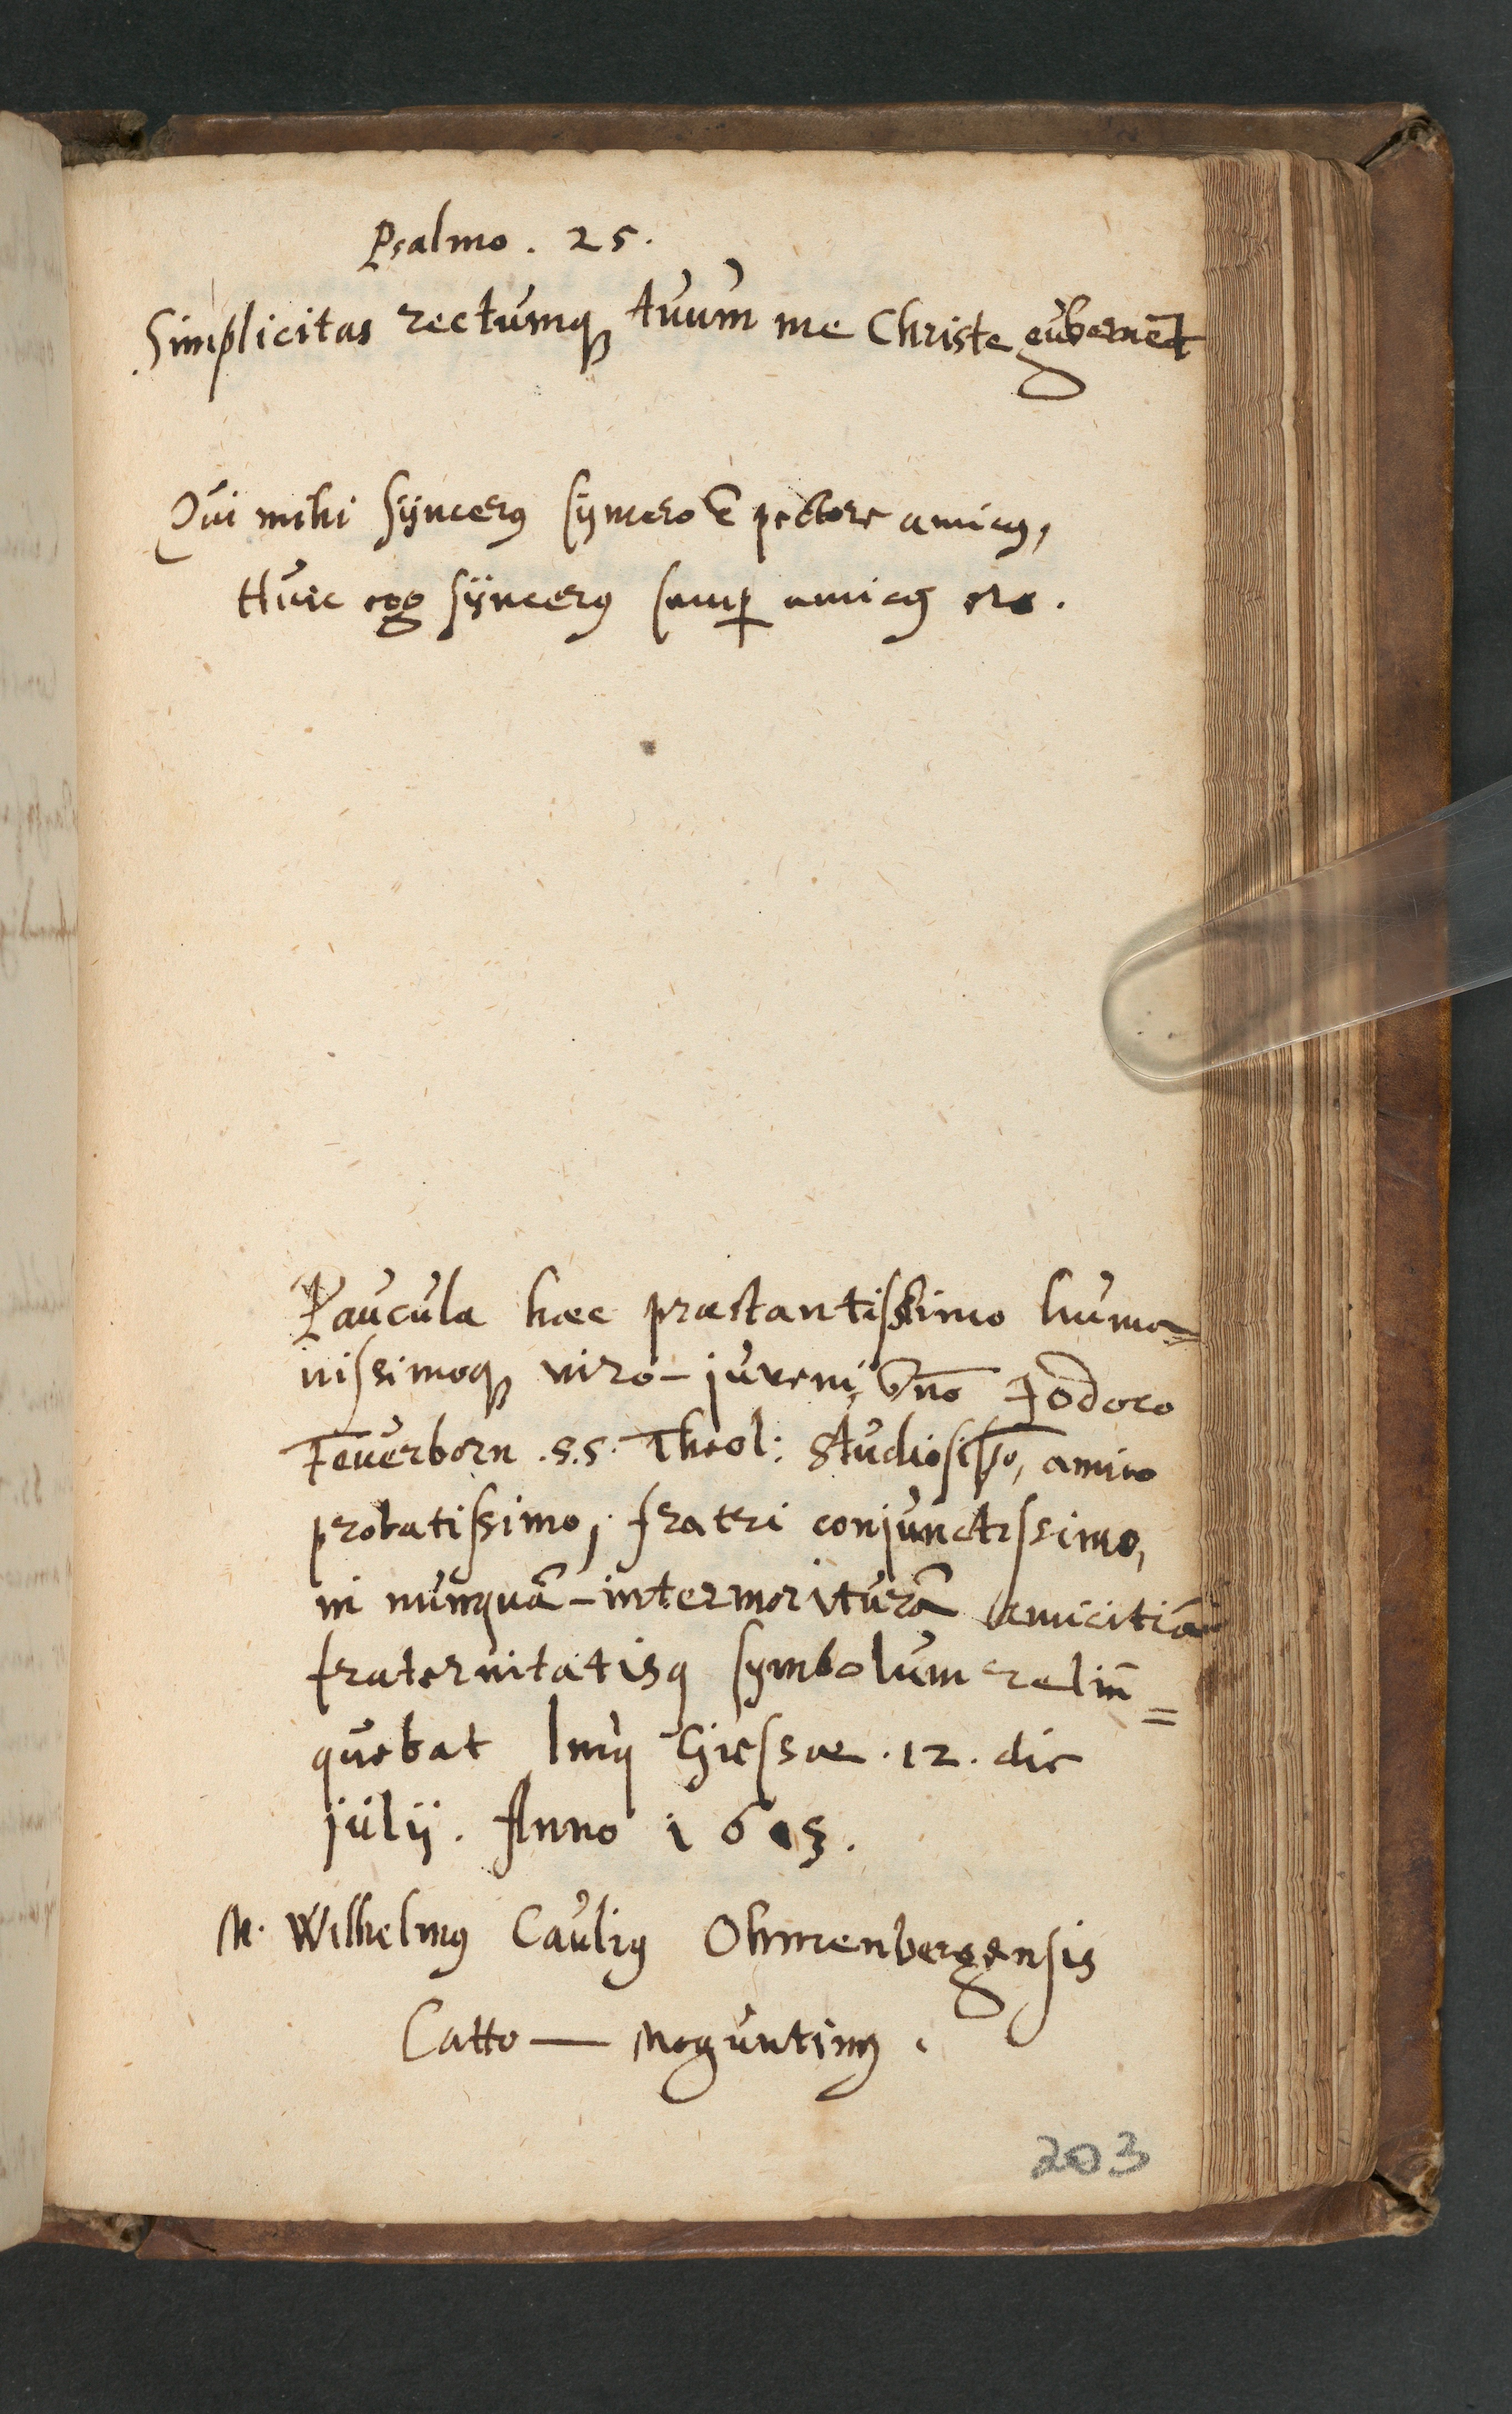 Psalmo. 25.
Simplicitas rectumq́ꝫ tuum me Christe gubernēt
Qui mihi syncerꝰ syncero è pectore amicꝰ,
Huic ego syncerꝰ semp̱ amicꝰ ero.
Paucula haec praestantissimo huma=
nissimoqꝫ viro-juveni, Dn̄o Jodoco
Feuerborn .S.S. Theol: studiosiss̄o, amico
probatissimo, fratri conjunctissimo,
in nunquā-intermoriturā amicitiae
fraternitatisq symbolum relin̄=
quebat Giessae .12. die
Julij. Anno 1615.
M. Wilhelmꝰ Cauliꝰ Ohmenbergensis
Catto — Moguntinꝰ.
203